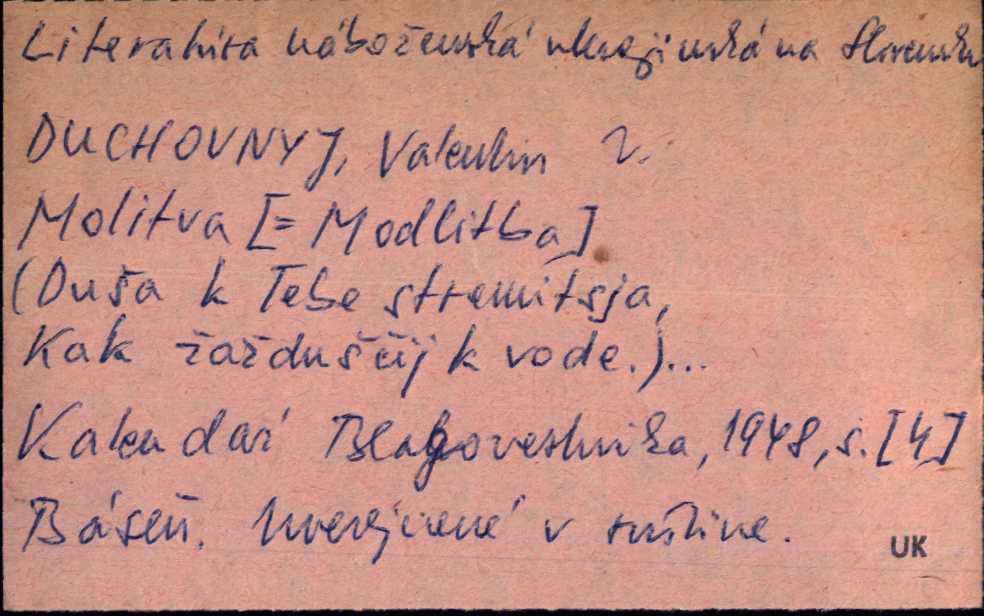 Literatúra náboženská ukrajinská na Slovensku
DUCHOVNYJ, Valentin V.
Molitva [= Modlitba]
(Duša k Tebe stremitsja,
Kak žažduščij k vode.)...
Kalendaŕ Blagovestnika, 1948, s. [4]
Báseň. Uverejnené v ruštine.
UK